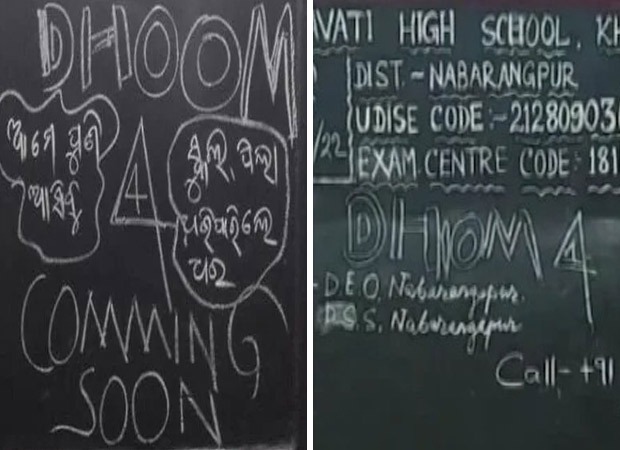 DHOOM
ଆମେ ପୁଣି
ଆସିବୁ
4
ପିଲା
ଧରିପାରିଲେ
ଧର
COMMING
SOON
VATI HIGH SCHOOL, KH
DIST.-NABARANGPUR
UDISE CODE:-212809030
/22
EXAM.CENTRE CODE:181
DHOOM 4
D.E.O, Nabarangpur.
S, Nabarangpur
Call-+91